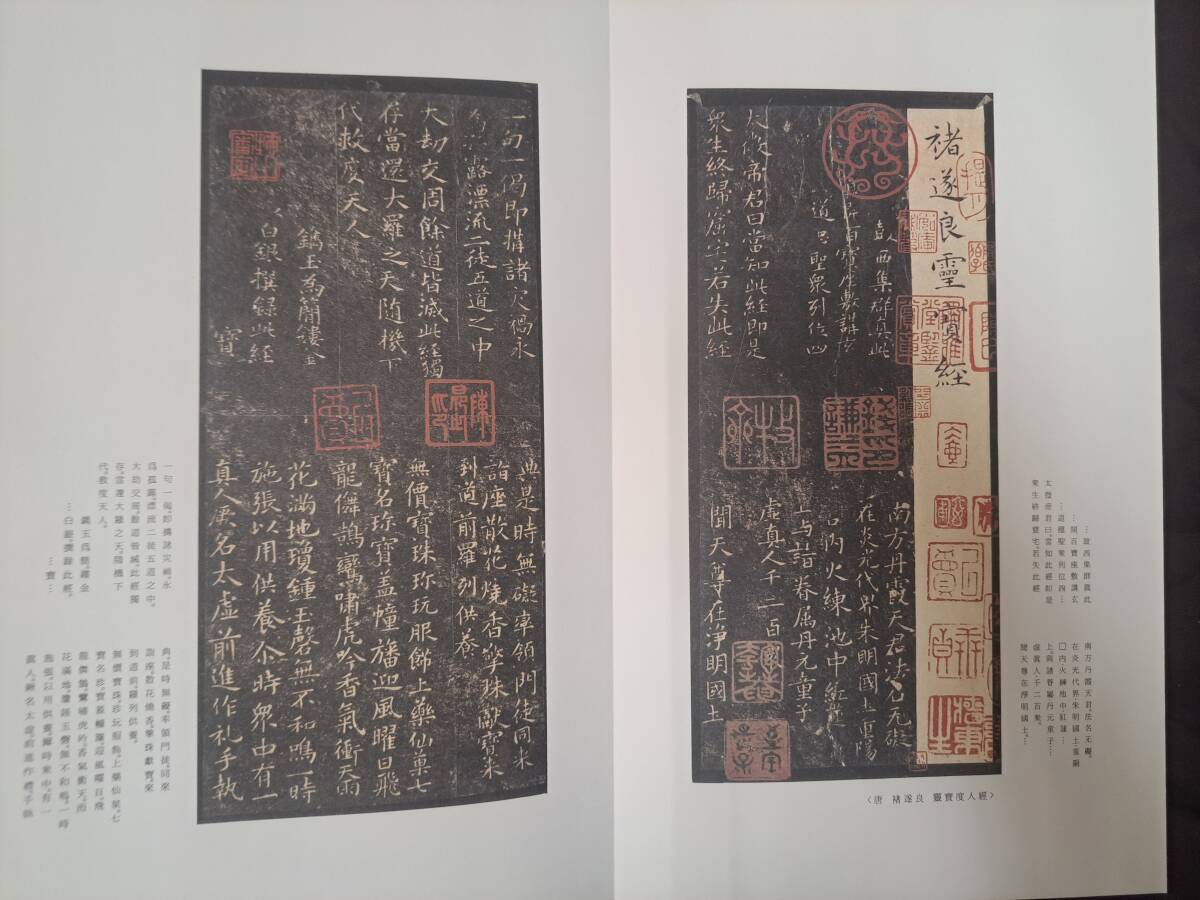 褚遂良靈寶經
西集群真此
百寶座敷講玄
道 聖衆列位四
太微帝君曰當知此經即是
衆生終歸窟宅若失此經
南方丹霞天君法名无礙
在炎光代界朱明國土
內火練池中
上与諸眷属丹元童子
虛真人千二百
聞天尊在浄明國土
錢氏謙益
…啟西集群眞此
…開百寶座敷講玄
…道 聖衆列位四…
太微帝君曰。當知此經即是
衆生終歸窟宅。若失此經
南方丹霞天君。法名无礙。
在炎光代界朱明國土
□內火練池中紅蓮…
上。與諸眷屬丹元童子…
虛眞人千二百衆。
聞天尊在淨明國土。…
〈唐 褚遂良 靈寶度人經〉
一句一偈即攘諸灾禍永
露漂流二徒五道之中
大劫交周餘道皆滅此經獨
存當還大羅之天隨機下
代救度天人
鐫玉為簡鏤金
白銀撰録此經
寶
典是時無礙率領門徒同來
詣座散花燒香擎珠獻寶來
到道前羅列供養
無價寶珠珎玩服飾上藥仙菓七
寶名珎寶盖幢旛迎風曜日飛
龍儛鵲鸞嘯虎吟香氣衝天雨
花滿地瓊鍾玉磬無不和鳴一時
施張以用供養尒時衆中有一
真人厥名太虛前進作礼手執
一句一偈。即攘諸灾禍。永
爲孤露。漂流二徒五道之中。
大劫交周。餘道皆滅。此經獨
存。當還大羅之天。隨機下
代。救度天人。
…鐫玉爲簡。鏤金
…白銀。撰録此經。
…寶…
典。是時無礙。率領門徒。同來
詣座。散花燒香。擎珠獻寶。來
到道前。羅列供養。
無價寶珠。珍玩服飾。上藥仙菓。七
寶名珍。寶蓋幢旛。迎風曜日。飛
龍儛鵲。鸞嘯虎吟。香氣衝天。雨
花滿地。瓊鍾玉磬。無不和鳴。一時
施張。以用供養。爾時衆中。有一
眞人。厥名太虛。前進作禮。手執